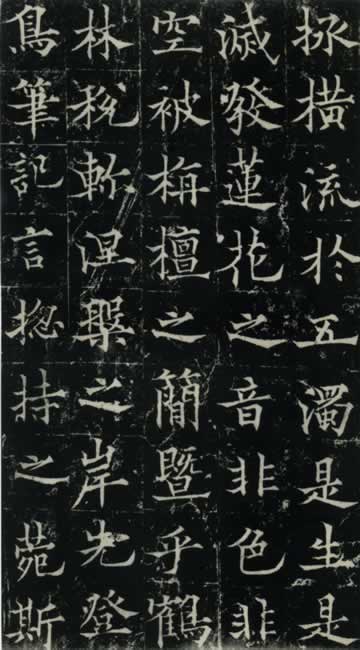 拯橫流扵五濁是生是
滅發蓮花之音非色非
空被栴檀之簡暨乎鶴
林稅軫涅槃之岸先登
鳥筆記言揔持之菀斯